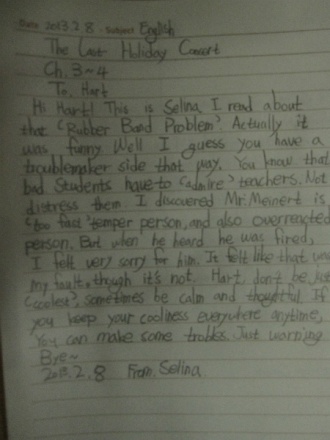 Date 2013.2.8 · Subject English
The Last Holiday Concert
Ch. 3~4
To. Hart
Hi Hart! This is Selina. I read about
that "Rubber Band Problem". Actually it
was funny. Well I guess you have a
troublemaker side that way. You know that
bad Students have to "admire" teachers. Not
distress them. I discovered Mr. Meinert is
"too fast" temper person, and also overreacted
person. But when he heard he was fired,
I felt very sorry for him. It felt like that was
my fault, though it's not. Hart, don't be just
"coolest", sometimes be calm and thoughtful. If
you keep your coolness everywhere anytime,
You can make some trobles. Just warning
Bye~
2013.2.8 From. Selina.